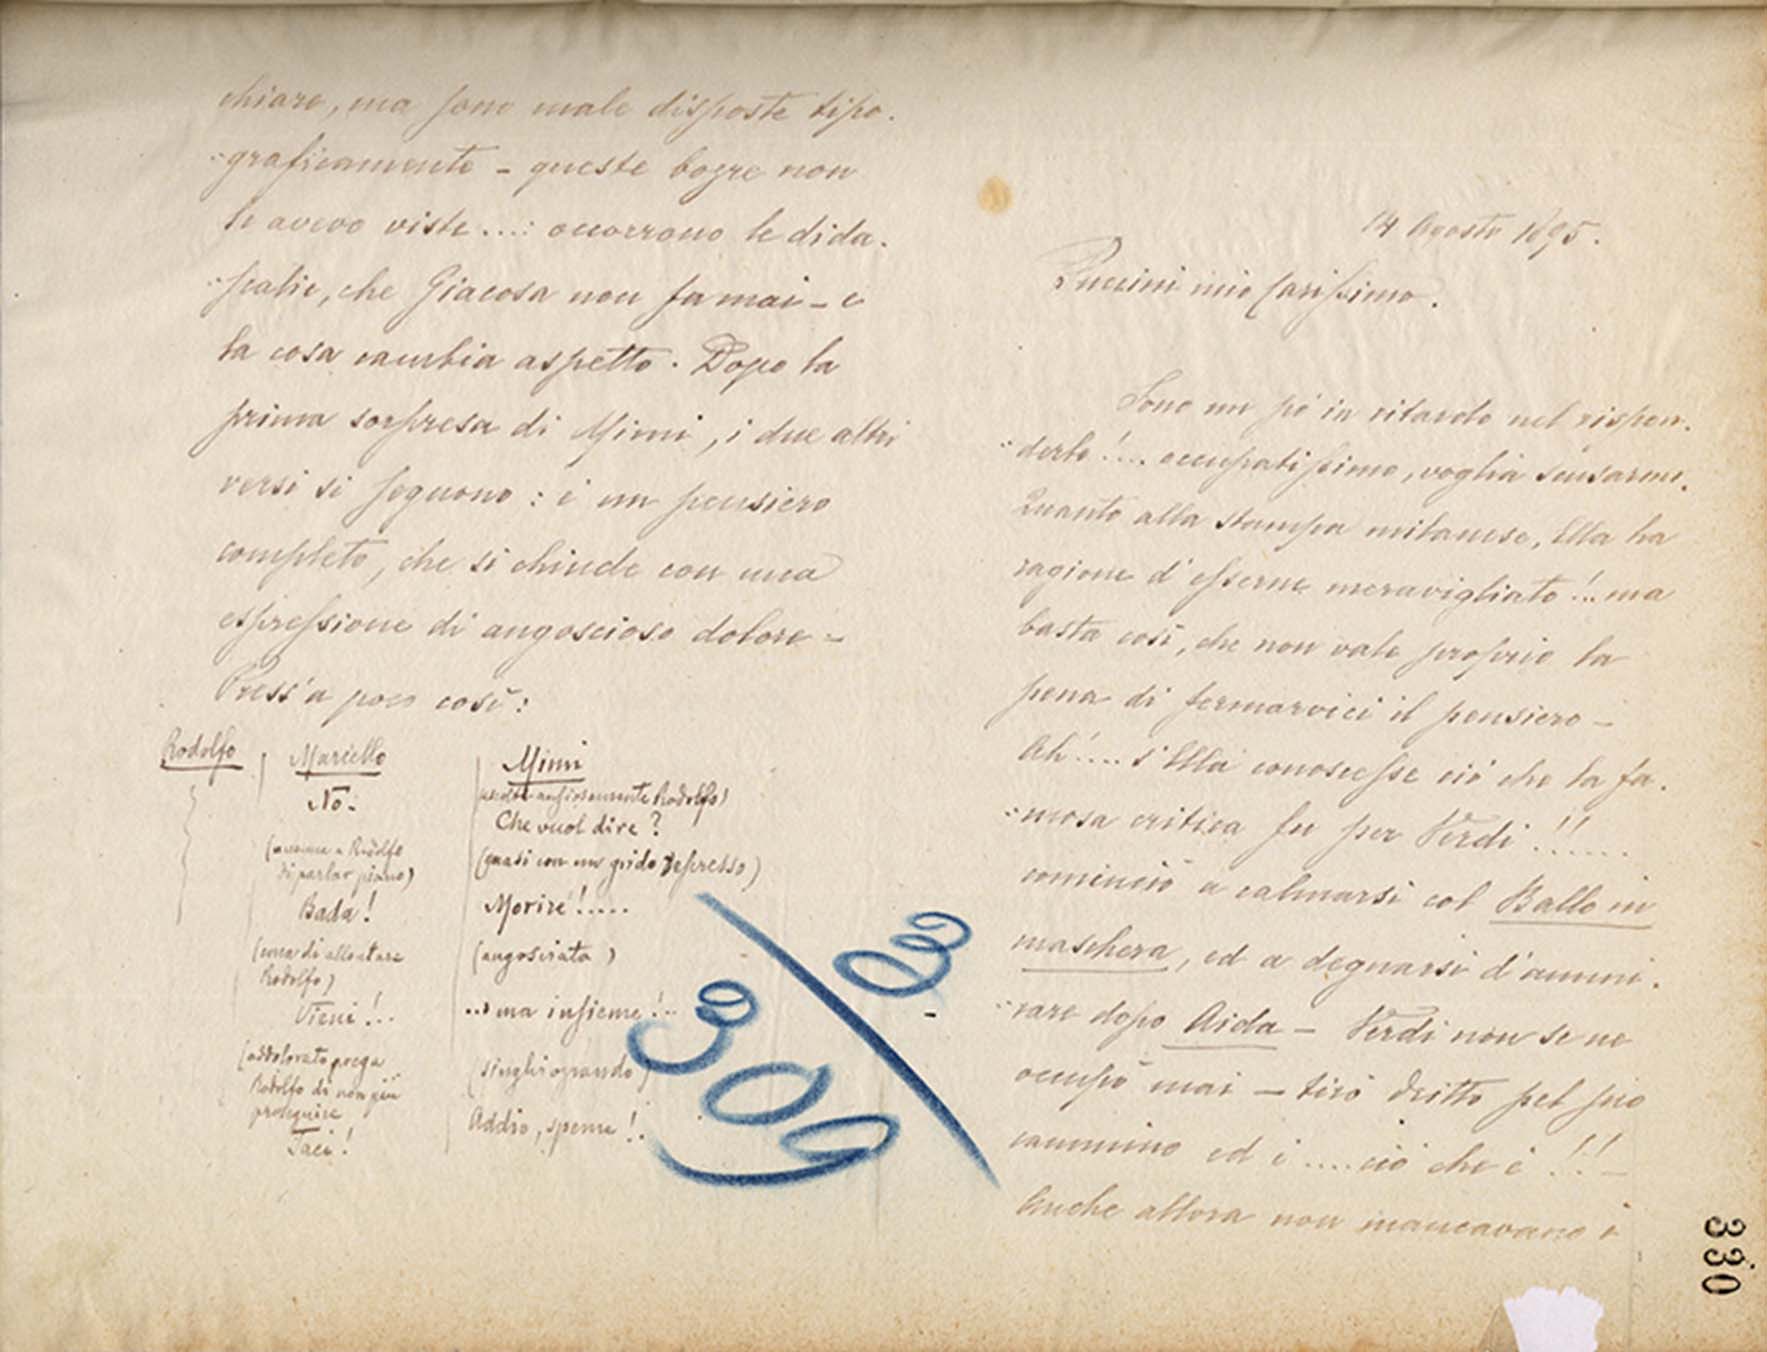 chiare, ma sono male disposte tipo-
-graficamente - queste bozze non
le avevo viste....: occorrono le dida-
-scalie, che Giacosa non fa mai - e
la cosa cambia aspetto. Dopo la
prima sorpresa di Mimi, i due altri
versi si seguono: è un pensiero
completo, che si chiude con una
espressione di angoscioso dolore -
Press'a poco così:
Rodolfo
Marcello
No.
(accenna a Rodolfo
di parlar piano)
Bada!
(cerca di allontare
Rodolfo)
Vieni!..
(addolorato prega
Rodolfo di non più
proseguire
Taci!
Mimi
(ascolta ansiosamente Rodolfo)
Che vuol dire?
(quasi con un grido represso)
Morire!.....
(angosciata)
...ma insieme!..
(singhiozzando)
Addio, speme!.
14 Agosto 1895.
Puccini mio carissimo.
Sono un pò in ritardo nel rispon-
-derle!.... occupatissimo, voglia scusarmi.
Quanto alla stampa milanese, Ella ha
ragione d'esserne meravigliato!.. ma
basta così, che non vale proprio la
pena di fermarvici il pensiero -
Ah!.... s'Ella conoscesse ciò che la fa-
-mosa critica fu per Verdi!!......
cominciò a calmarsi col Ballo in
maschera, ed a degnarsi d'ammi-
-rare dopo Aida - Verdi non se ne
occupò mai - tirò dritto pel suo
cammino ed è .... ciò che è!!! -
Anche allora non mancavano i
330